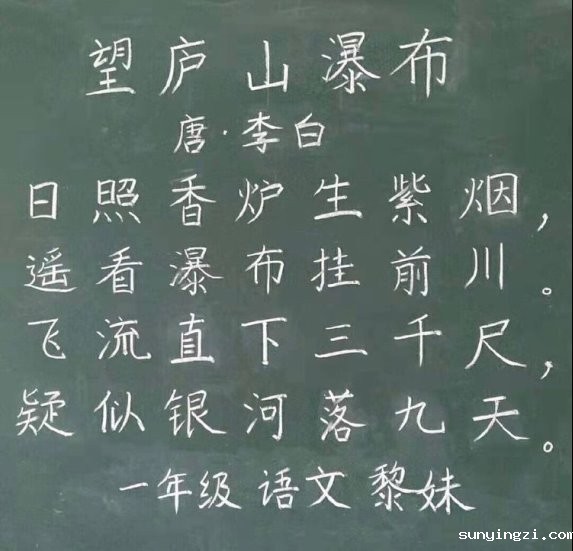 望庐山瀑布
唐·李白
日照香炉生紫烟，
遥看瀑布挂前川。
飞流直下三千尺，
疑似银河落九天。
一年级 语文 黎妹
sunyingzi.com